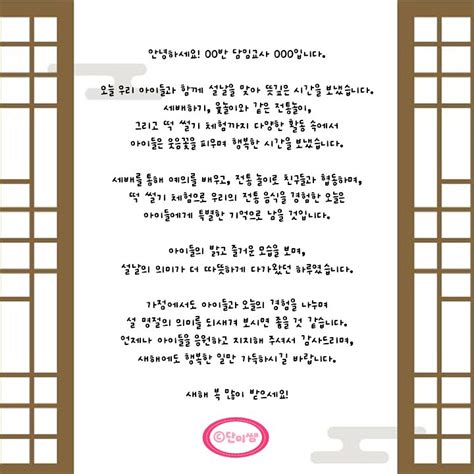 안녕하세요! 00반 담임교사 000입니다.
오늘 우리 아이들과 함께 설날을 맞아 뜻깊은 시간을 보냈습니다.
세배하기, 윷놀이와 같은 전통놀이,
그리고 떡 썰기 체험까지 다양한 활동 속에서
아이들은 웃음꽃을 피우며 행복한 시간을 보냈습니다.
세배를 통해 예의를 배우고, 전통 놀이로 친구들과 협동하며,
떡 썰기 체험으로 우리의 전통 음식을 경험한 오늘은
아이들에게 특별한 기억으로 남을 것입니다.
아이들의 밝고 즐거운 모습을 보며,
설날의 의미가 더 따뜻하게 다가왔던 하루였습니다.
가정에서도 아이들과 오늘의 경험을 나누며
설 명절의 의미를 되새겨 보시면 좋을 것 같습니다.
언제나 아이들을 응원하고 지지해 주셔서 감사드리며,
새해에도 행복한 일만 가득하시길 바랍니다.
새해 복 많이 받으세요!
©단아쌤